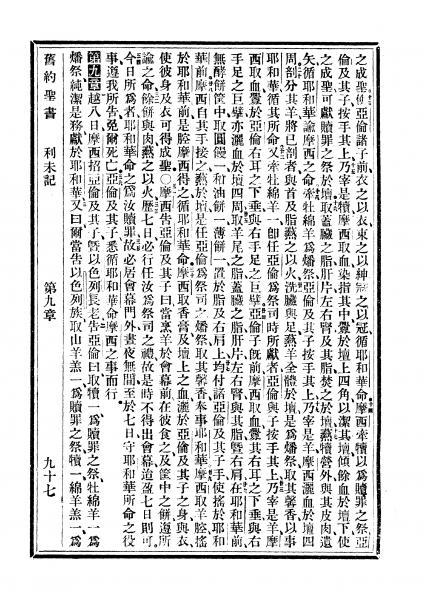 之成聖、使亞倫諸子前、衣之以衣、束之以紳、冠之以冠、循耶和華命、摩西牽犢、以爲贖罪之祭、亞
倫及其子按手其上、乃宰是犢、摩西取血、染指其中、釁於壇上四角、以潔其壇、傾餘血於壇下、使
之成聖、可獻贖罪之祭於壇、取蓋臟之脂、肝片、左右腎及其脂、焚之於壇、燕犢營外、與其皮肉遺
矢、循耶和華諭摩西之命、牽牡綿羊爲燔祭、亞倫及其子按手其上、乃宰是羊、摩西灑血於壇四
周、剖分其羊、將已剖者、與首及脂、爇之以火、洗臟與足、爇羊全體於壇、是爲燔祭、取其馨香、以事
耶和華、循其所命、又牽牡綿羊一、卽任亞倫爲祭司時所獻者、亞倫與子按手其上、乃宰是羊、摩
西取血、釁於亞倫右耳之下垂、與右手足之巨擘、亞倫子旣前、摩西取血、釁其右耳之下垂、與右
手足之巨擘、亦灑血於壇四周、取羊尾之脂、蓋臟之脂、肝片、左右腎與其脂、曁右肩、在耶和華前、
無酵餅筐中、取一團饅、一和油餅、一薄餅、一置於脂及右肩上、均付諸亞倫及其子手、使搖於耶和
華前、摩西自其手接之、爇於壇、是任亞倫爲祭司之燔祭、取其馨香、奉事耶和華、摩西取羊腔、搖
於耶和華前、是腔摩西得之、循耶和華命、摩西取香膏及壇上之血、灑於亞倫及其子之身與衣、
使彼身及衣、可得成聖、○摩西告亞倫及其子曰、當烹羊於會幕前、在彼食之、及筐中之餅、遵所
諭之命、餘餅與肉、爇之以火、歷七日必行任汝爲祭司之禮、故是時不得出會幕、迨盈七日則可、
今日所爲者、耶和華命之、爲汝贖罪、故必居會幕門外、晝夜無間、至於七日、守耶和華所命之役
事、遵我所告、免爾死亡、亞倫及其子悉循耶和華命摩西之事而行、
第九章 越八日、摩西招亞倫及其子、曁以色列長老、告亞倫曰、取犢一、爲贖罪之祭、牡綿羊一、爲
燔祭、純潔是務、獻於耶和華、又曰、爾當告以色列族、取山羊羔一、爲贖罪之祭、犢一、綿羊羔一、爲
舊約聖書 利未記 第九章 九十七